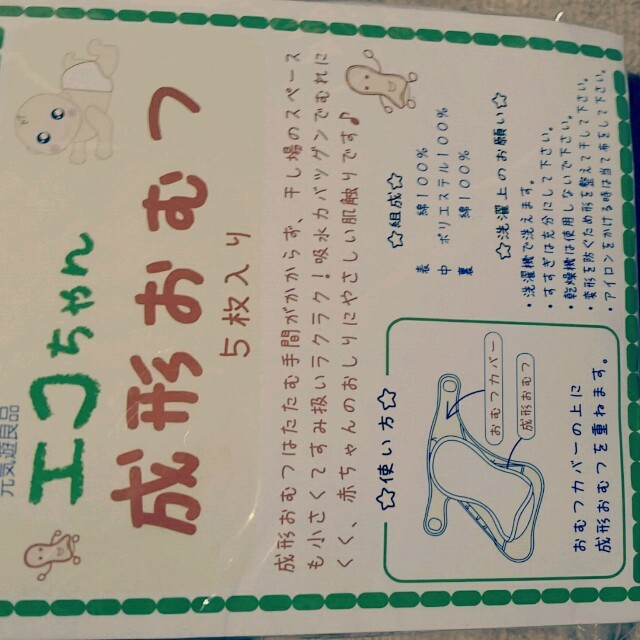 元気遊良品
エコちゃん
成形おむつ
5枚入り
成形おむつはたたむ手間がかからず、干し場のスペース
も小さくてすみ扱いラクラク!吸水力バツグンでむれに
くく、赤ちゃんのおしりにやさしい肌触りです♪
☆組成☆
表 綿100%
中 ポリエステル100%
裏 綿100%
☆洗濯上のお願い☆
・洗濯機で洗えます。
・すすぎは充分にして下さい。
・乾燥機は使用しないで下さい。
・変形を防ぐため形を整えて干して下さい。
・アイロンをかける時は当て布をして下さい。
☆使い方☆
おむつカバー
成形おむつ
おむつカバーの上に
成形おむつを重ねます。